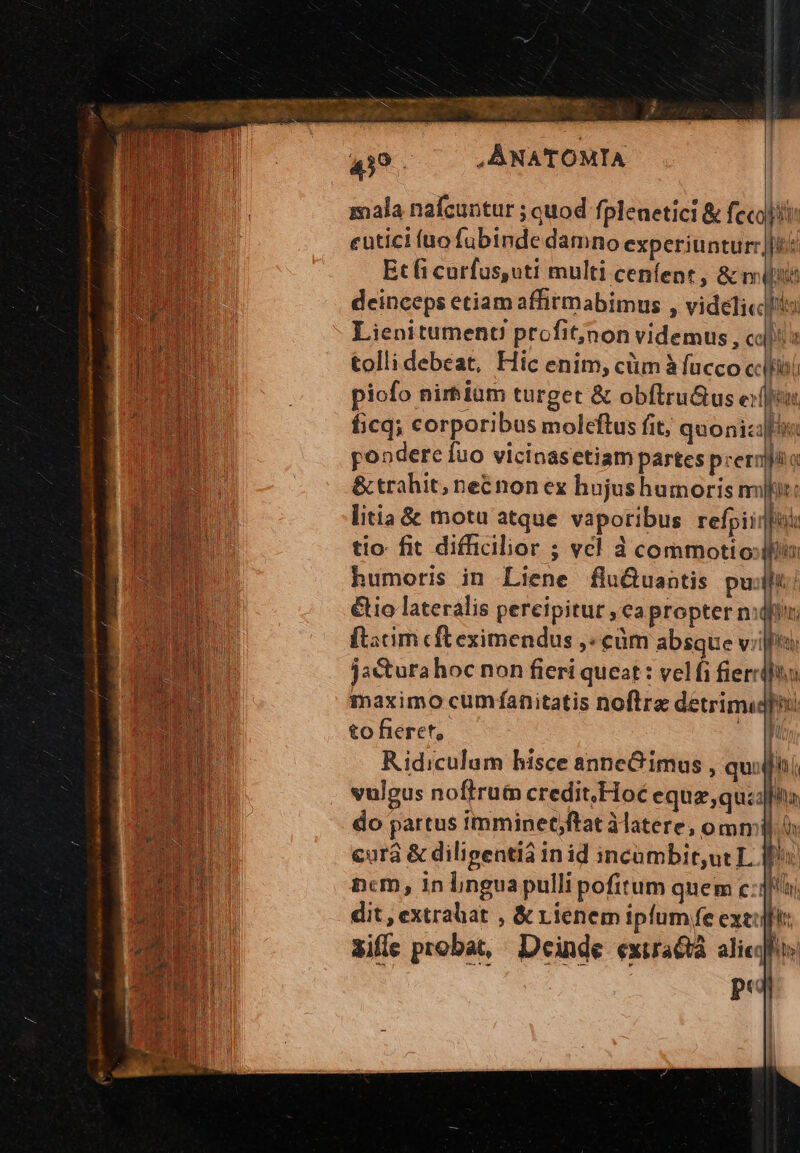 430 ANATOMIA
mala naſcuntur ; quod ſplenetici &
eutici ſuo ſubinde damno experiuntur
Et ſi curſus, uti multi cenſent, &
deinceps etiam affirmabimus ,
Lieni tumenti proſit, non videmus ,
tolli debeat, Hic enim, cùm à ſucco
pioſo nimium turget & obſtructus
ficq; corporibus moleſtus fit,
pondere ſuo vicinas etiam partes
& trahit, necnon ex hujus humoris
litia & motu atque vaporibus
tio fit difficilior ; vel à
humoris in Liene fluctuantis
ctio lateralis percipitur , ea propter
ſtatim eſt eximendus , cùm absque
jactura hoc non fieri queat : vel ſi
maximo cum ſanitatis noſtræ
to fieret,
Ridiculum hisce annectimus ,
vulgus noſtrum credit. Hoc equæ,
do partus imminet, ſtat à latere,
curâ & diligentiâ in id incumbit, ut
nem, in lingua pulli poſitum quem
dit, extrahat , & Lienem ipſum ſe
xiſſe probat, Deinde extractâ